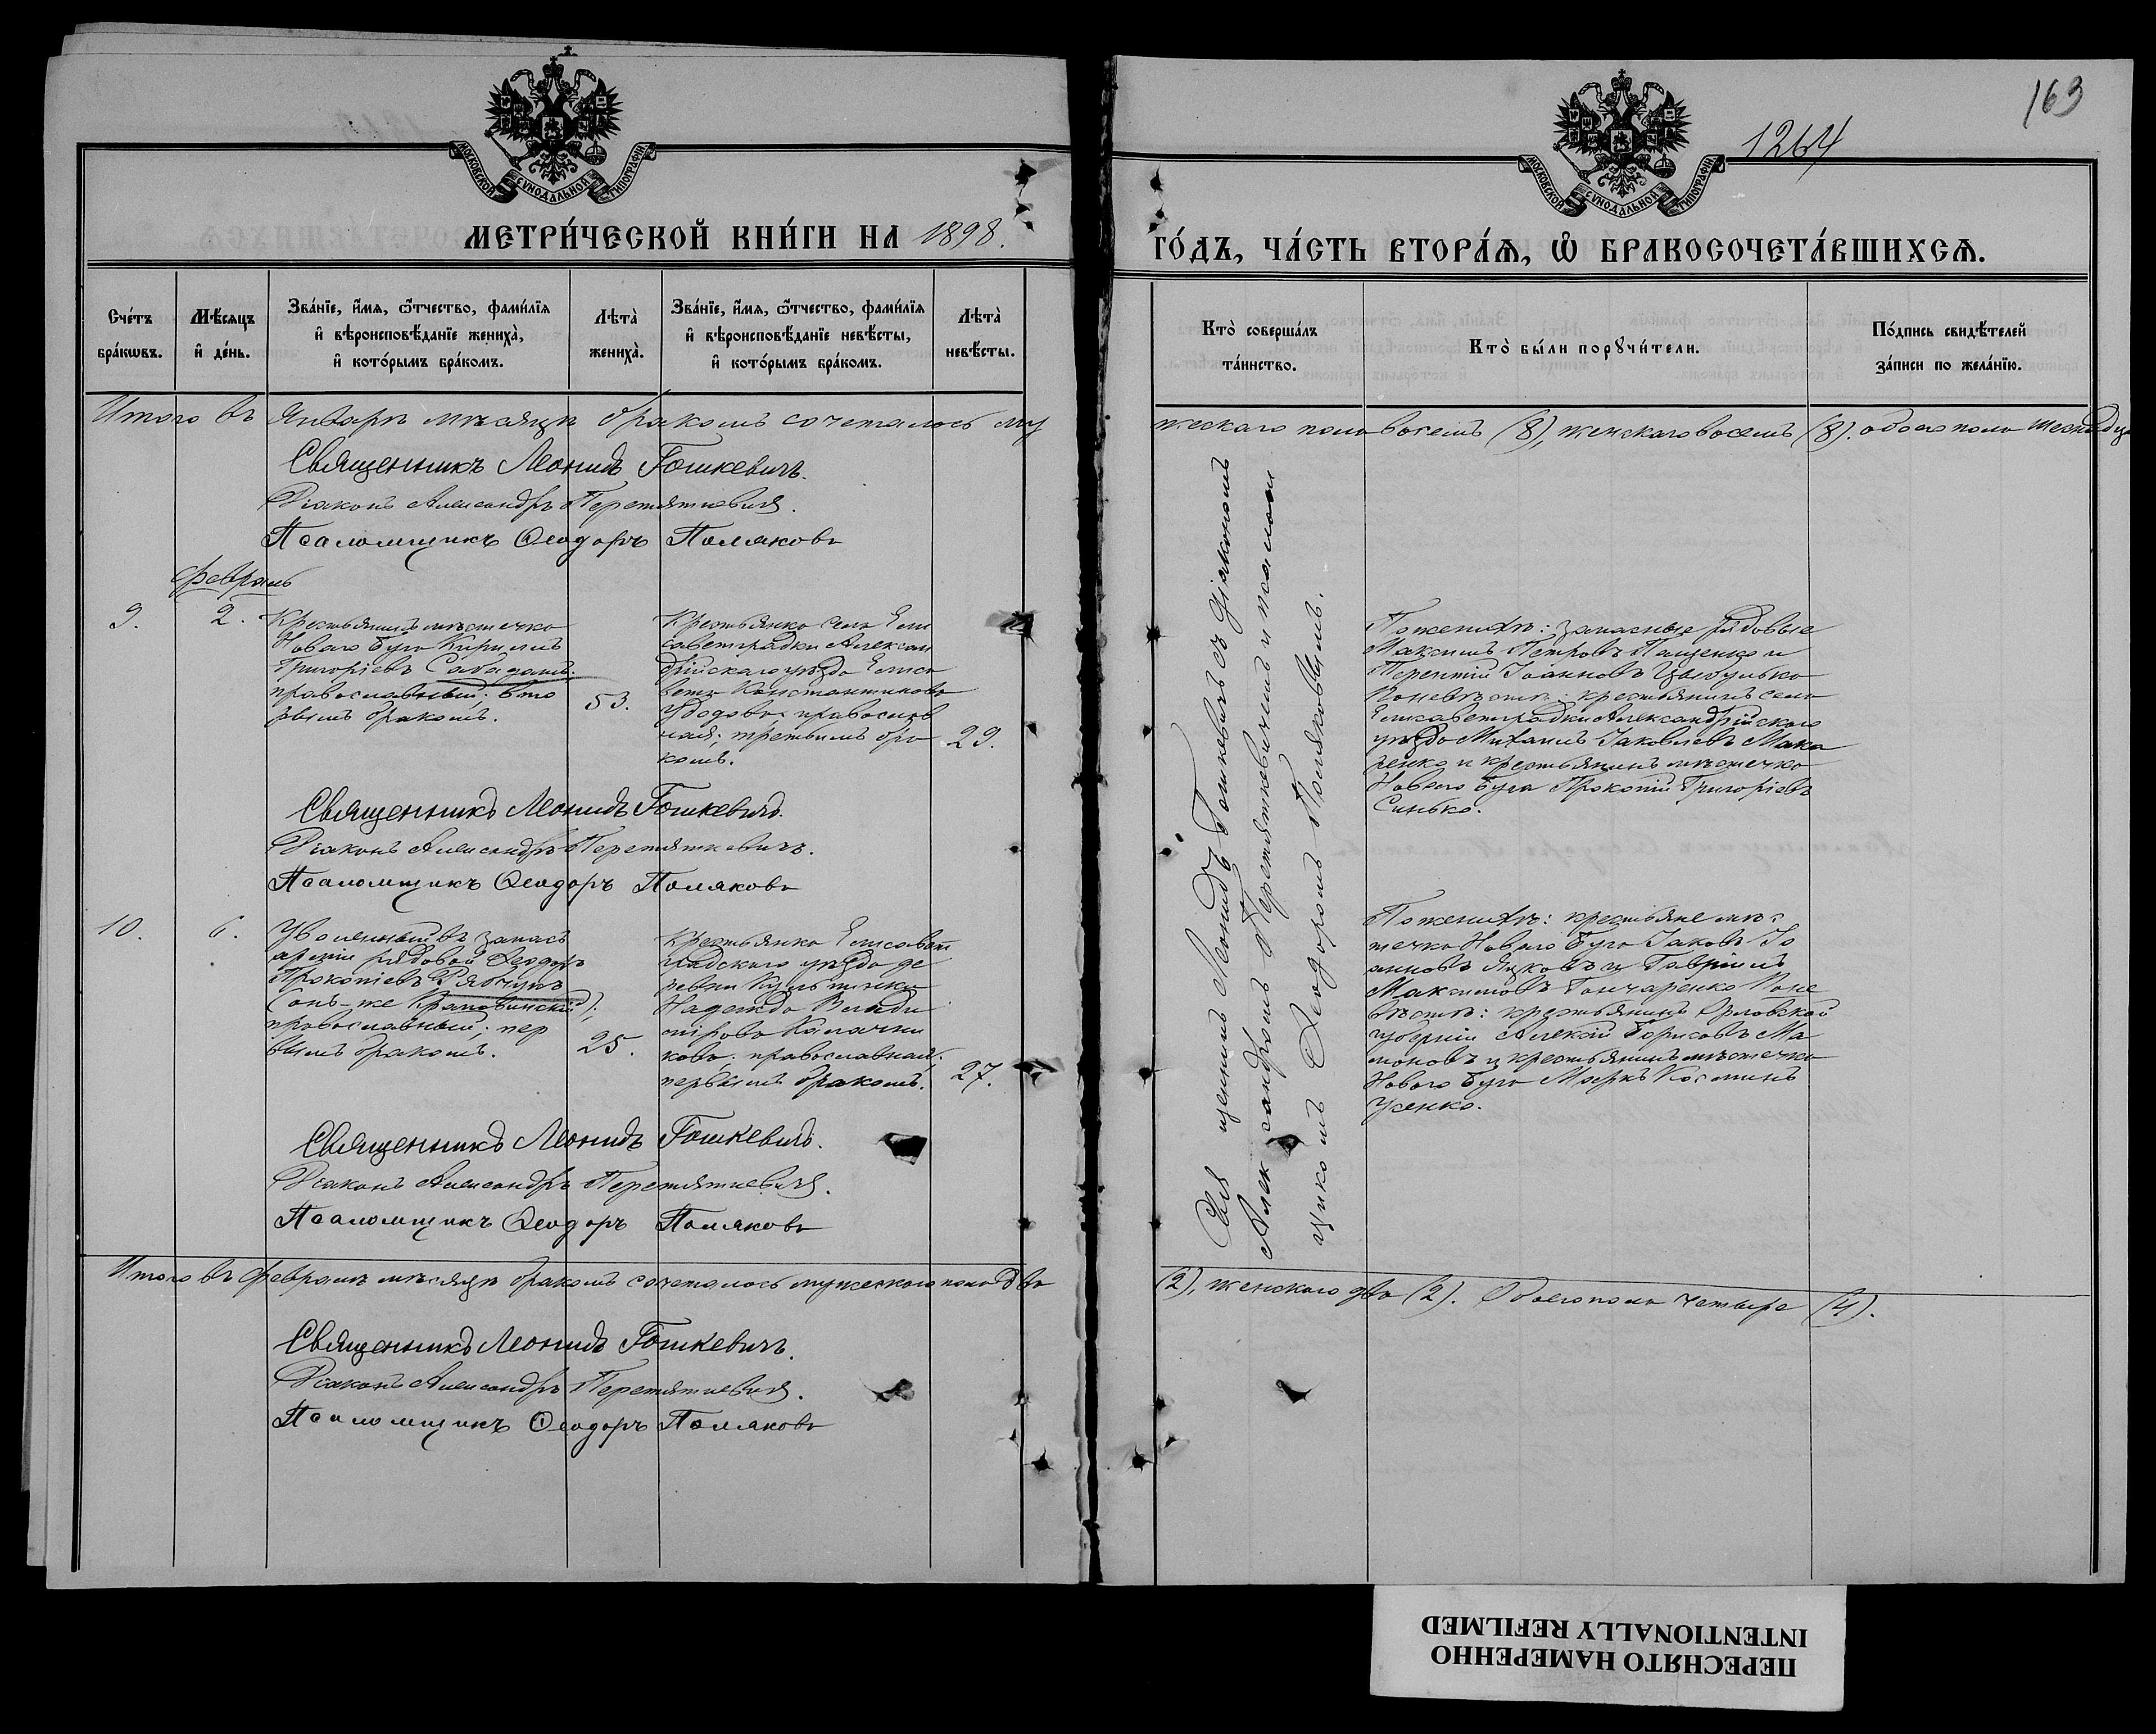 163
1264
МОСКОВСКОЙ СѴНОДАЛЬНОЙ ТИПОГРАФІИ
МОСКОВСКОЙ СѴНОДАЛЬНОЙ ТИПОГРАФІИ
МЕТРИ́ЧЕСКОЙ КНИ́ГИ НА 1898.
ГО́ДЪ, ЧА́СТЬ ВТОРА́Ѧ, Ѡ҆ БРАКОСОЧЕТА́ВШИХСѦ.
Сче́тъ бра́кѡвъ.
Мѣ́сяцъ и҆ де́нь.
Зва́нїе, и҆́мѧ, ѻ҆́тчество, фами́лїѧ и҆ вѣроисповѣ́данїе жениха̀, и҆ кото́рымъ бра́комъ.
Лѣта̀ жениха̀.
Зва́нїе, и҆́мѧ, ѻ҆́тчество, фами́лїѧ и҆ вѣроисповѣ́данїе невѣ́сты, и҆ кото́рымъ бра́комъ.
Лѣта̀ невѣ́сты.
Кто̀ соверша́лъ та́инство.
Кто̀ бы́ли порꙋчи́тели.
По́дпись свидѣ́телей за́писи по жела́нїю.
Итого въ Январѣ мѣсяцѣ бракомъ сочеталось му
жескаго пола восемь (8), женскаго восемь (8). обоего пола
Священникъ Леонидъ Гошкевичъ.
Діаконъ Александръ Перетяткевичъ.
Псаломщикъ Ѳеодоръ Поляковъ
Февраль
9.
2.
Крестьянинъ мѣстечка
Новаго Буга Кириллъ
Григоріевъ
православный; вто
рымъ бракомъ.
53.
Крестьянка села Ели
саветградки Алексан
дрійскаго уѣзда Елиса
вета Константинова
православ
ная; третьимъ бра
комъ.
29.
Священникомъ Леонидомъ Гошкевичемъ съ діакономъ
Александромъ Перетяткевичемъ и псалом
щикомъ Ѳеодоромъ Поляковымъ.
По женихѣ: запасные рядовые
Максимъ Петровъ Пащенко и
Терентій Іоанновъ Цыбулько
По невѣстѣ: крестьянинъ села
Елисаветградки Александрійскаго
уѣзда Михаилъ Іаковлевъ Мака
ренко и крестьянинъ мѣстечка
Новаго Буга Прокопій Григоріевъ
Синько.
Священникъ Леонидъ Гошкевичъ.
Діаконъ Александръ Перетяткевичъ.
Псаломщикъ Ѳеодоръ Поляковъ
10.
6.
Уволенный въ запасъ
арміи рядовой Ѳеодоръ
Прокопіевъ Рябчунъ
(онъ-же
православный; пер
вымъ бракомъ.
25.
Крестьянка Елисавет
градскаго уѣзда де
ревни
Надежда Влади
мірова Калачни
кова; православная;
первымъ бракомъ.
27.
По женихѣ: крестьяне мѣс
течка Новаго Буга Іаковъ Іо
анновъ и Гавріилъ
Максимовъ Гончаренко По не
вѣстѣ: крестьянинъ Орловской
губерніи Алексій Борисовъ Ма
моновъ и крестьянинъ мѣстечка
Новаго Буга Маркъ Косминъ
Усенко.
Священникъ Леонидъ Гошкевичъ.
Діаконъ Александръ Перетяткевичъ.
Псаломщикъ Ѳеодоръ Поляковъ
Итого въ Февралѣ мѣсяцѣ бракомъ сочеталось мужескаго пола два
(2), женскаго два (2). Обоего пола четыре (4).
Священникъ Леонидъ Гошкевичъ.
Діаконъ Александръ Перетяткевичъ.
Псаломщикъ Ѳеодоръ Поляковъ
ПЕРЕСНЯТО НАМЕРЕННО
INTENTIONALLY REFILMED